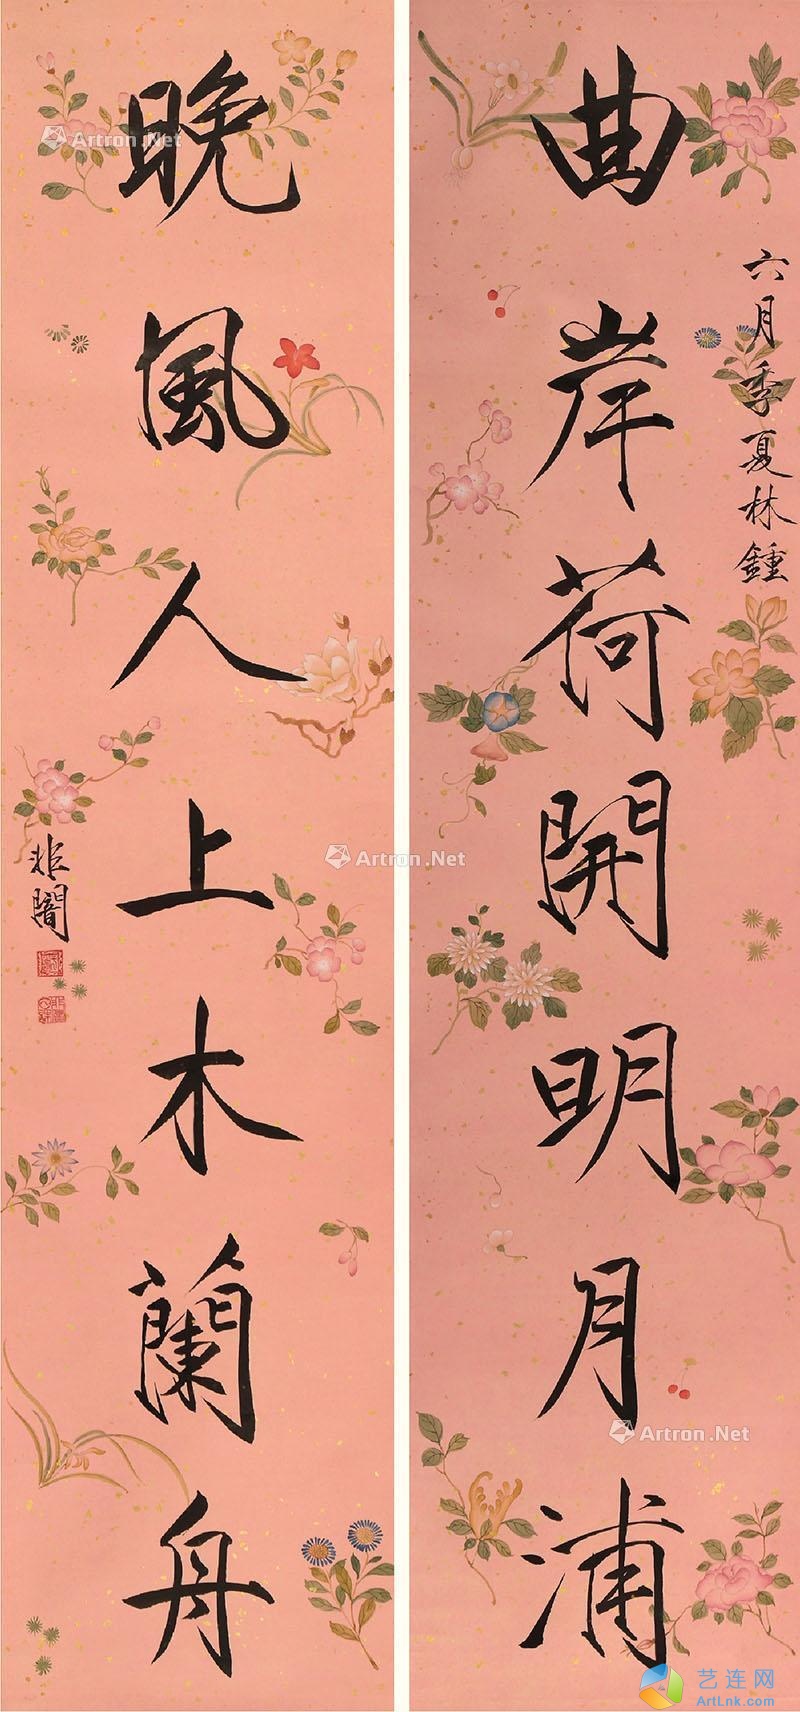 曲岸荷開明月浦
六月季夏林鍾
晚風人上木蘭舟
非闇
Artron.Net
Artron.Net
Artron.Net
艺连网
ArtLnk.com